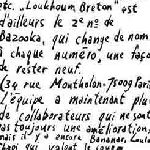 etc. "Loukhoum Breton" est
d'ailleurs le 2e no de
Bazooka, qui change de nom
à chaque numéro, une façon
de rester neuf.
(34 rue Montholon-75009 Paris
L'équipe a maintenant plu
de collaborateurs qui ne sont
pas toujours une amélioration,
mais il y a entre Bananar, Loulou
qui valent le